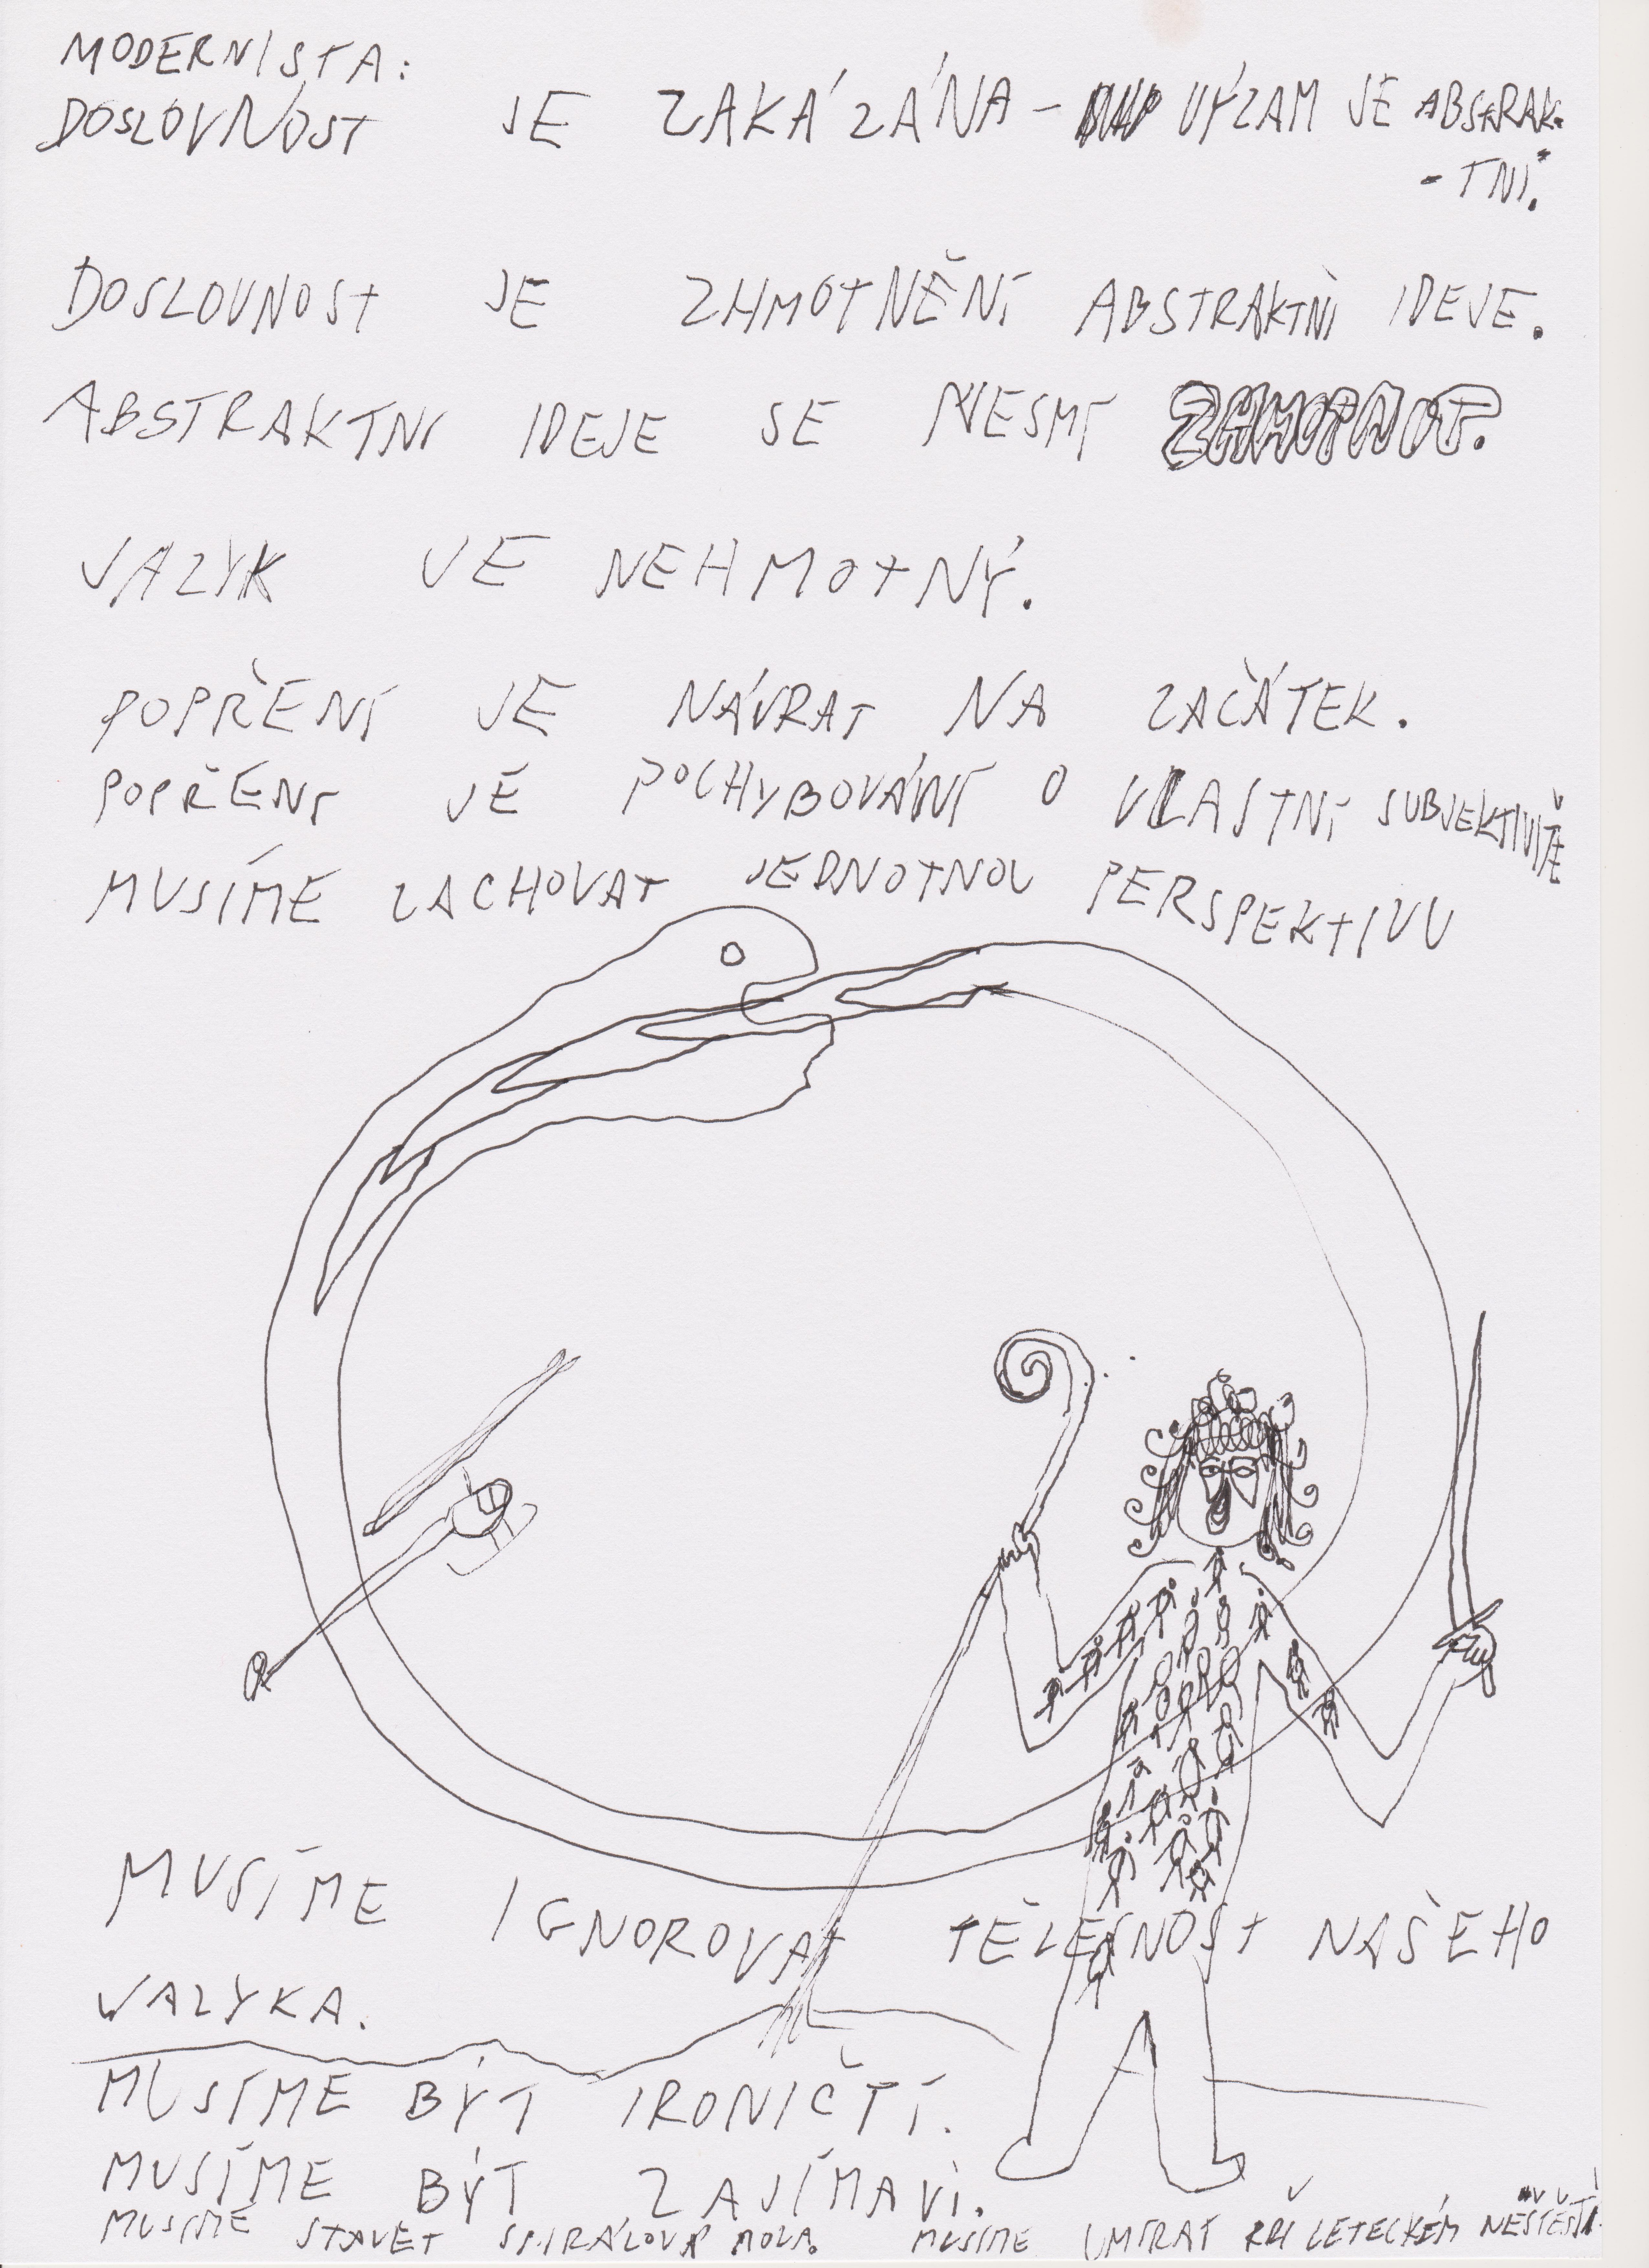 MODERNISTA:
DOSLOVNOST JE ZAKÁZÁNA - VÝZAM JE ABSTRAK-
- TNÍ.
DOSLOVNOST JE ZHMOTNĚNÍ ABSTRAKTNÍ IDEJE.
ABSTRAKTNÍ IDEJE SE NESMÍ ZHMOTNIT.
JAZYK JE NEHMOTNÝ.
POPŘENÍ JE NÁVRAT NA ZAČÁTEK.
POPŘENÍ JE POCHYBOVÁNÍ O VLASTNÍ SUBJEKTIVITĚ
MUSÍME ZACHOVAT JEDNOTNOU PERSPEKTIVU
MUSÍME IGNOROVAT TĚLESNOST NAŠEHO
JAZYKA.
MUSÍME BÝT IRONIČTÍ.
MUSÍME BÝT ZAJÍMAVÍ.
MUSÍME STAVĚT SPIRÁLOVÁ MOLA. MUSÍME UMÍRAT PŘI LETECKÉM NEŠTĚSTÍ.